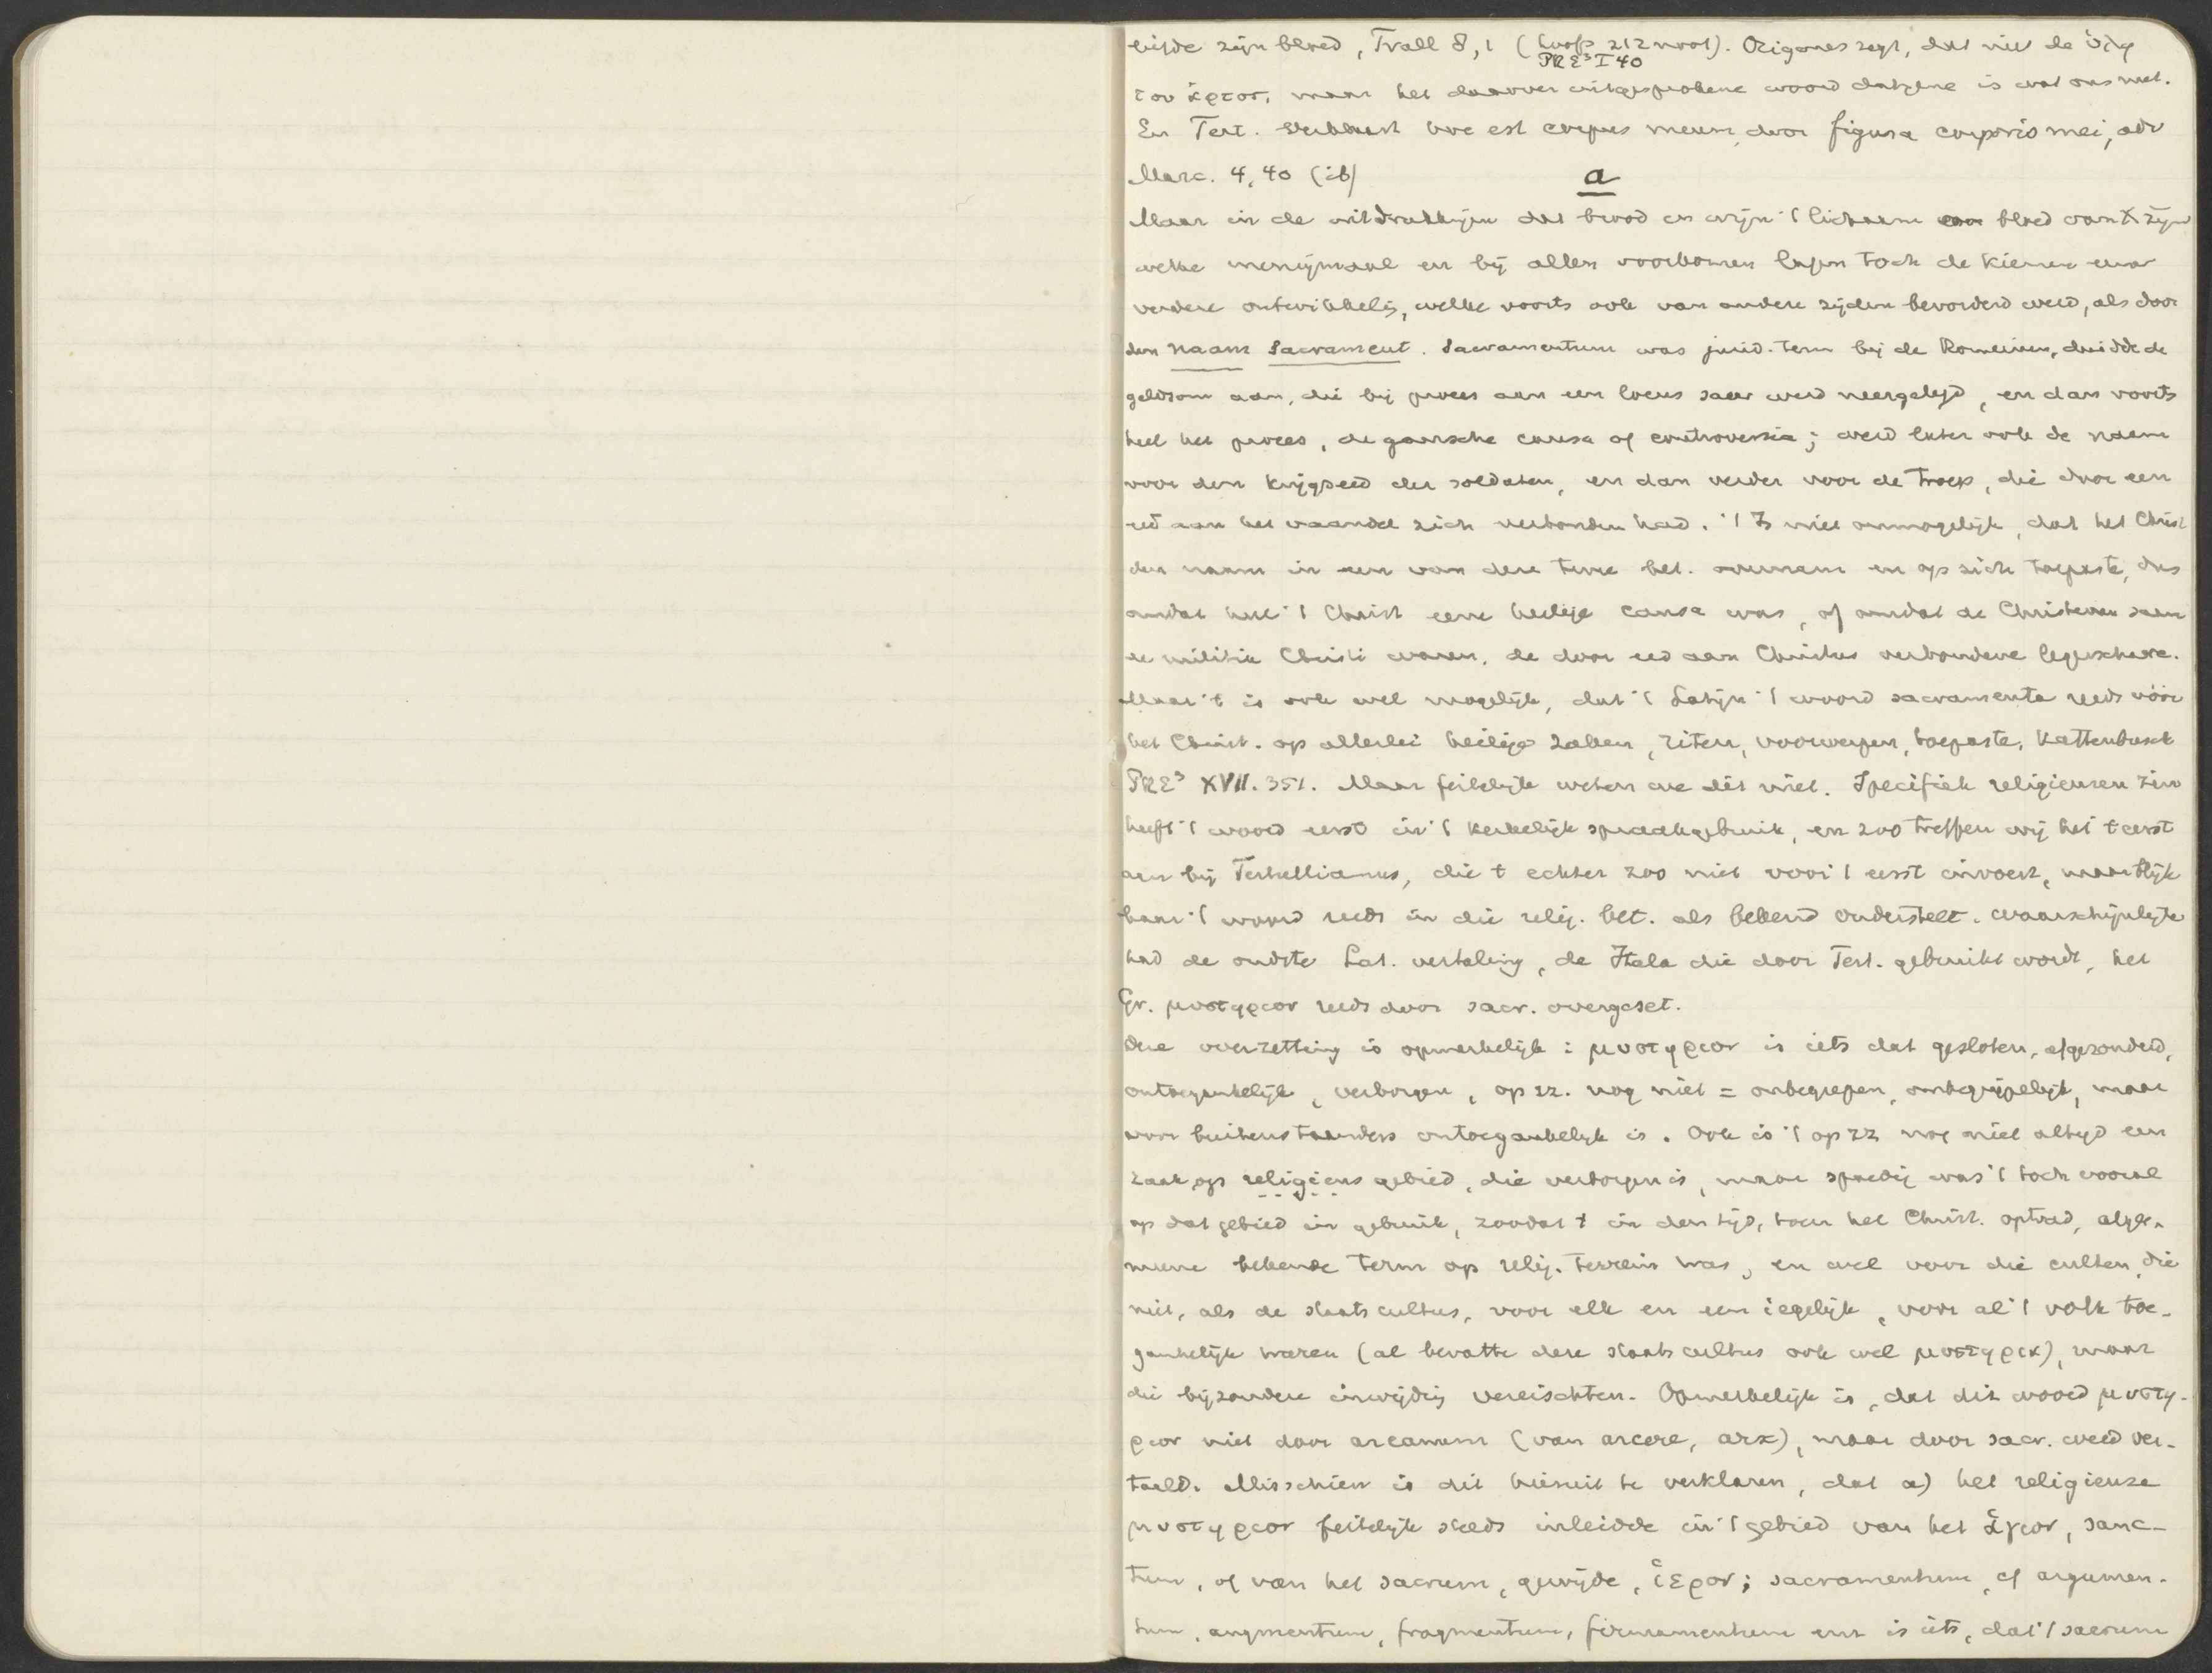 liefde zijn bloed, Trall 8,1 (Loofs 212 noot). Origenes zegt, dat niet de ὕλη
PRE³ I 40
του ἄρτου, maar het daarover uitgesproken woord datgene is wat ons nut.
En Tert. verklaart hoc est corpus meum, door figura corporis mei, adv
Marc. 4,40 (ib)
a
Maar in de uitdrukkingen dat brood en wijn 't lichaam en bloed van X zijn
welke menigmaal en bij allen voorkomen lagen toch de kiemen eener
verdere ontwikkelig, welke voorts ook van andere zijden bevorderd werd, als door
den naam Sacrament. Sacramentum was jurid. term bij de Romeinen, duidde de
geldsom aan, die bij proces aan een locus sacer werd neergelegd, en dan voorts
heel het proces, de gansche causa of controversia; werd later ook de naam
voor den krijgseed der soldaten, en dan verder voor de troep, die door een
eed aan het vaandel zich verbonden had. 't Is niet onmogelijk, dat het Christ
den naam in een van deze twee bet. overnam en op zich toepaste, dus
omdat heel 't Christ eene heilige causa was, of omdat de Christenen saam
de militia Christi waren, de door eed aan Christus verbondene legerschare.
Maar 't is ook wel mogelijk, dat 't Latijn 't woord sacramenta reeds vóór
het Christ. op allerlei heilige zaken, riten, voorwerpen, toepaste, Kattenbusch
PRE³ XVII. 351. Maar feitelijk weten we dit niet. Specifiek religieuzen zin
heeft 't woord eerst in 't kerkelijk spraakgebruik, en zoo treffen wij het 't eerst
aan bij Tertullianus, die 't echter zoo niet voor 't eerst invoert, maar blijk-
baar 't woord reeds in die relig. bet. als bekend onderstelt. Waarschijnlijk
had de oudste Lat. vertaling, de Itala die door Tert. gebruikt wordt, het
Gr. μυστηριον reeds door sacr. overgezet.
Deze overzetting is opmerkelijk: μυστηριον is iets dat gesloten, afgezonderd,
ontoegankelijk, verborgen, op zz. nog niet = onbegrepen, onbegrijpelijk, maar
voor buitenstaanders ontoegankelijk is. Ook is 't op zz nog niet altijd een
zaak op religieus gebied, die verborgen is, maar spoedig was 't toch vooral
op dat gebied in gebruik, zoodat 't in den tijd, toen het Christ. optrad, alge-
meene bekende term op relig. terrein was, en wel voor die culten, die
niet, als de staatscultus, voor elk en een iegelijk, voor al 't volk toe-
gankelijk waren (al bevatte deze staatscultus ook wel μυστηρια), maar
die bijzondere inwijdig vereischten. Opmerkelijk is, dat dit woord μυστη-
ριον niet door arcanum (van arcere, arx), maar door sacr. werd ver-
taald. Misschien is dit hieruit te verklaren, dat a) het religieuze
μυστηριον feitelijk steeds inleidde in 't gebied van het ἅγιον, sanc-
tum, of van het sacrum, gewijde, ἱερον; sacramentum, cf argumen-
tum, augmentum, fragmentum, firmamentum enz is iets, dat 't sacrum